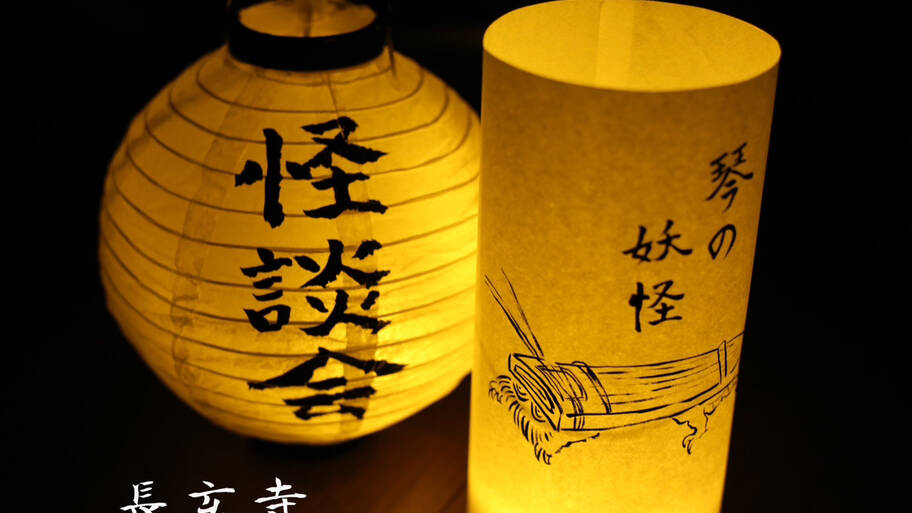 怪談会
琴の
妖怪
長玄寺